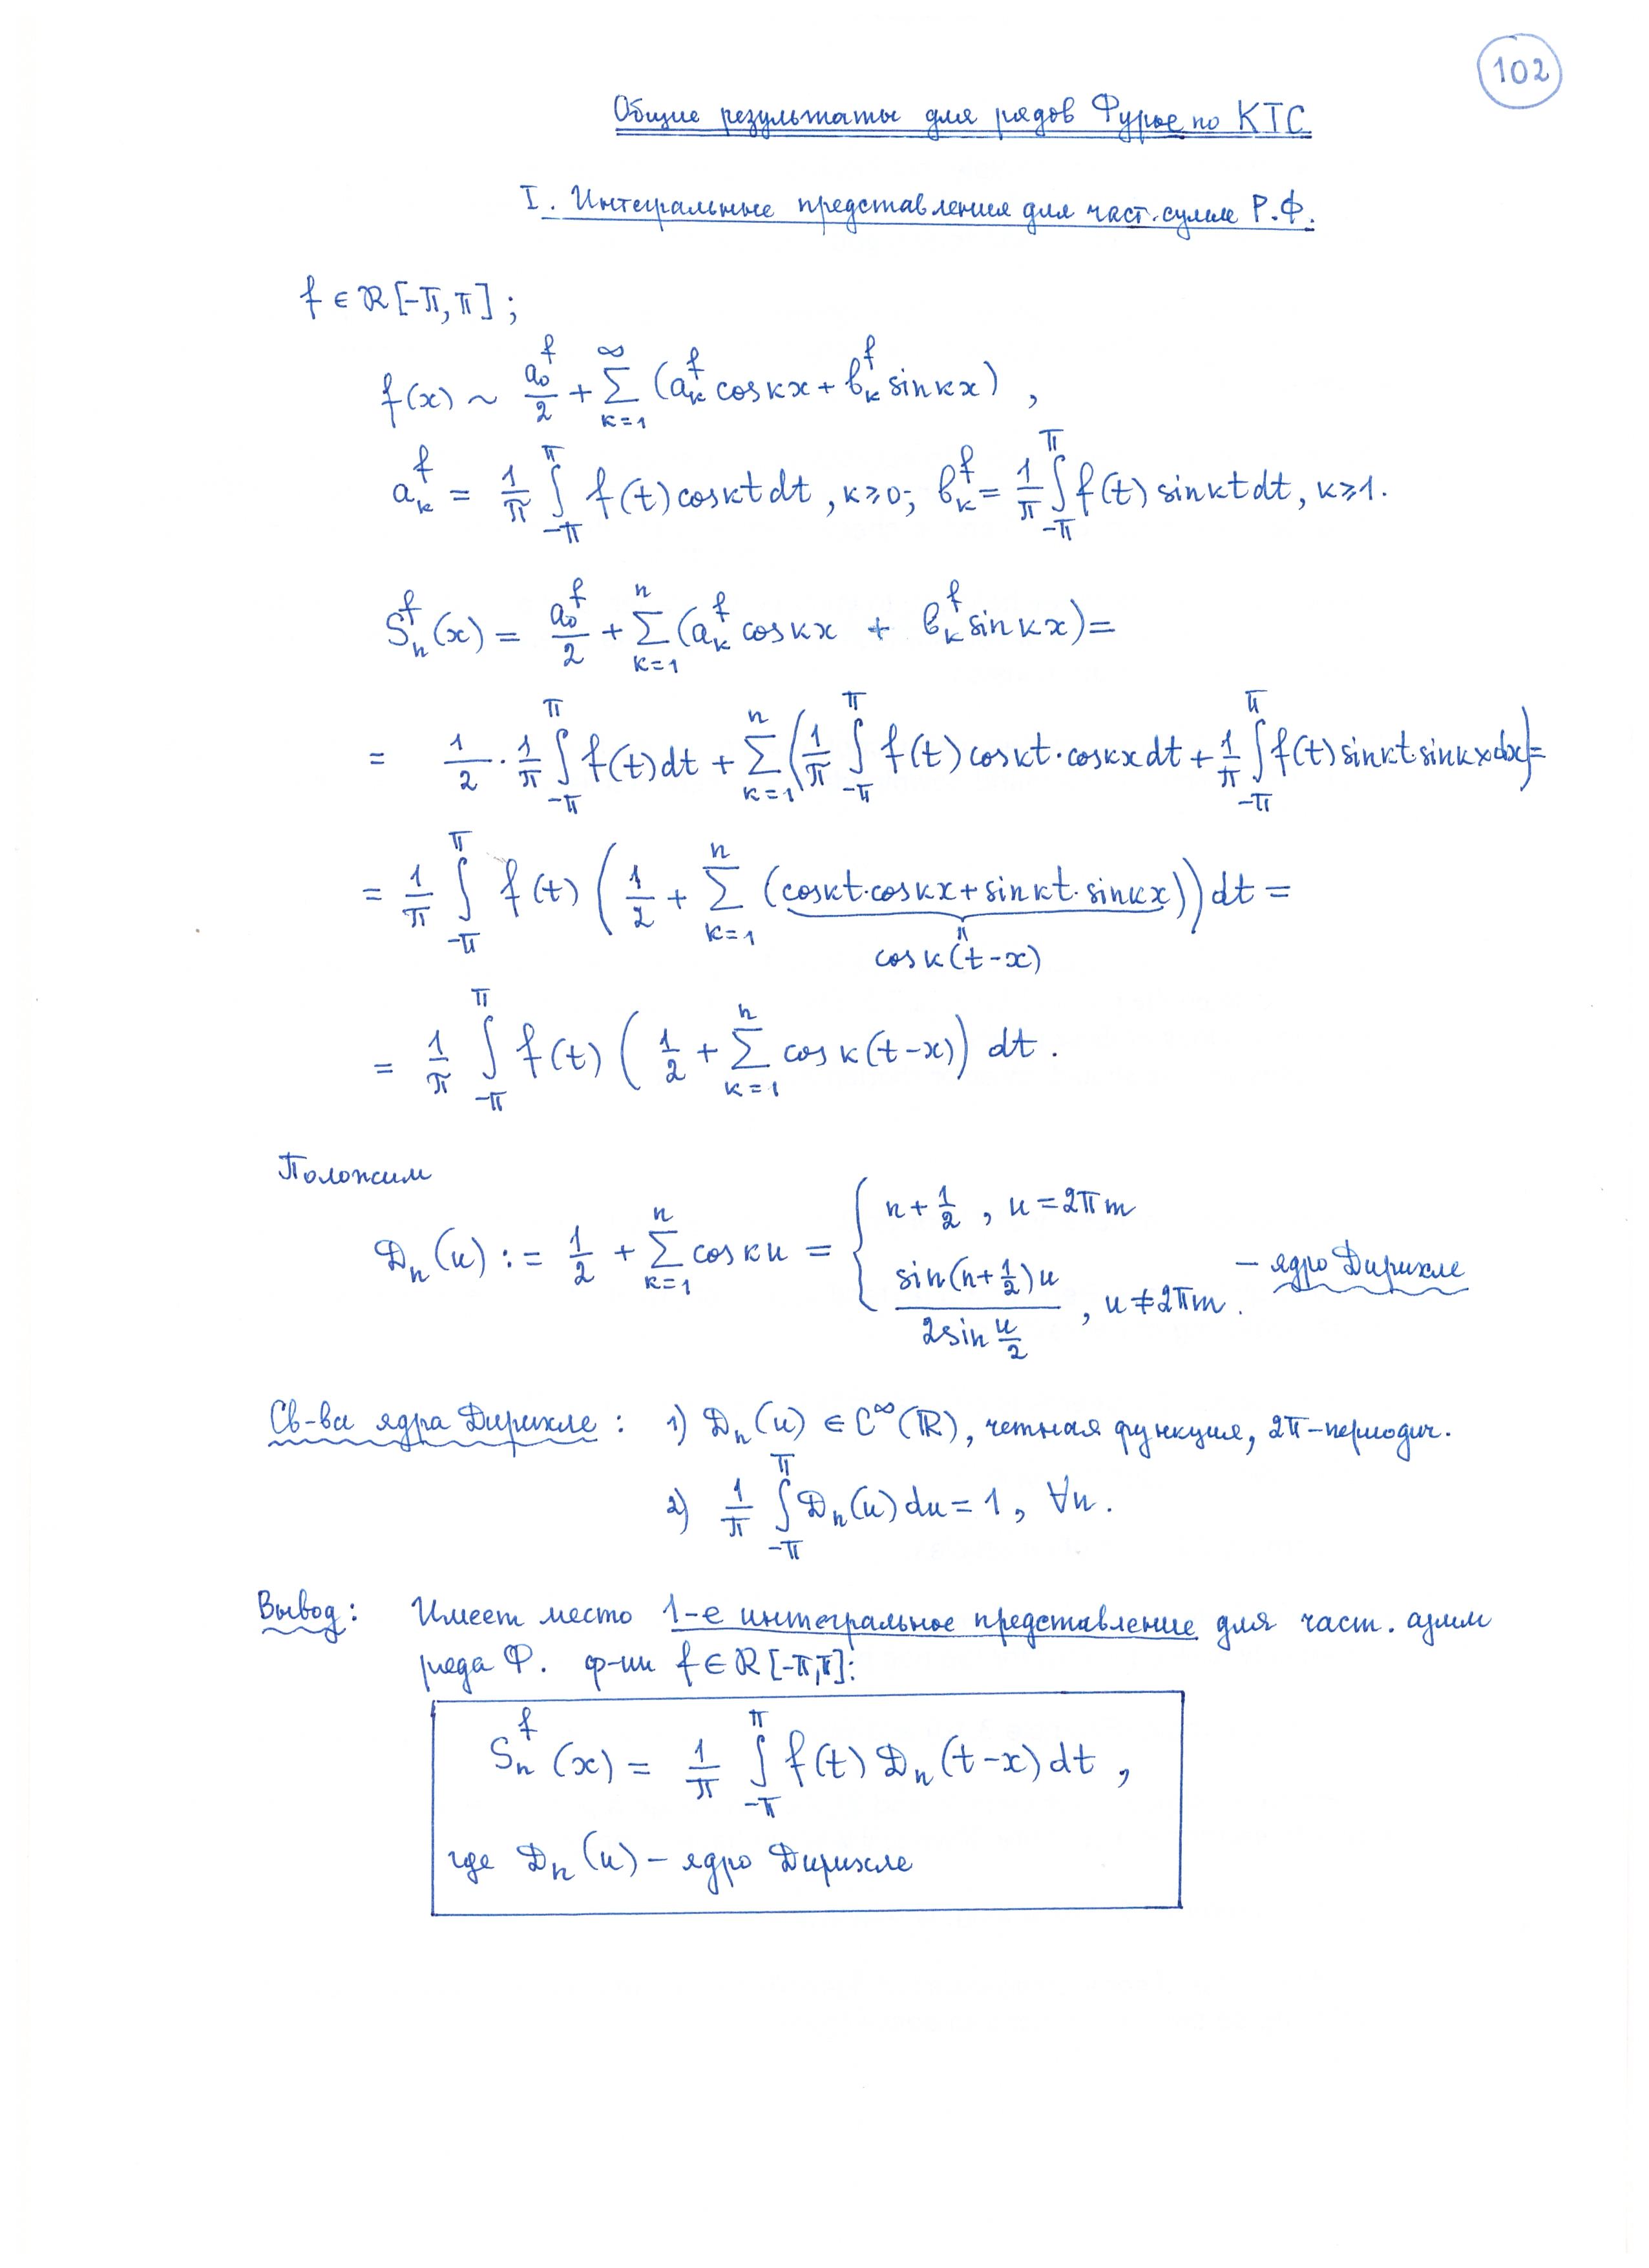 102
Общие результаты для рядов Фурье по КТС
I. Интегральные представления для част. сумм Р.Ф.
f ∈ ℛ[-π, π];
f(x) ~ a₀^f/2 + ∑_{k=1}^{∞} (a_k^f cos kx + b_k^f sin kx),
a_k^f = 1/π ∫_{-π}^{π} f(t) cos kt dt, k ≥ 0; b_k^f = 1/π ∫_{-π}^{π} f(t) sin kt dt, k ≥ 1.
S_n^f(x) = a₀^f/2 + ∑_{k=1}^{n} (a_k^f cos kx + b_k^f sin kx) =
= 1/2 · 1/π ∫_{-π}^{π} f(t) dt + ∑_{k=1}^{n} (1/π ∫_{-π}^{π} f(t) cos kt · cos kx dt + 1/π ∫_{-π}^{π} f(t) sin kt sin kx dx) =
= 1/π ∫_{-π}^{π} f(t) (1/2 + ∑_{k=1}^{n} (cos kt · cos kx + sin kt · sin kx)) dt =
cos k(t-x)
= 1/π ∫_{-π}^{π} f(t) (1/2 + ∑_{k=1}^{n} cos k(t-x)) dt.
Положим
𝒟_n(u) := 1/2 + ∑_{k=1}^{n} cos ku = { n + 1/2, u = 2πm
sin(n + 1/2)u / 2sin u/2, u ≠ 2πm. – ядро Дирихле
Св-ва ядра Дирихле: 1) 𝒟_n(u) ∈ C^∞(ℝ), четная функция, 2π-периодич.
2) 1/π ∫_{-π}^{π} 𝒟_n(u) du = 1, ∀n.
Вывод: Имеет место 1-е интегральное представление для част. сумм
ряда Ф. ф-ии f ∈ ℛ[-π, π]:
S_n^f(x) = 1/π ∫_{-π}^{π} f(t) 𝒟_n(t-x) dt,
где 𝒟_n(u) – ядро Дирихле